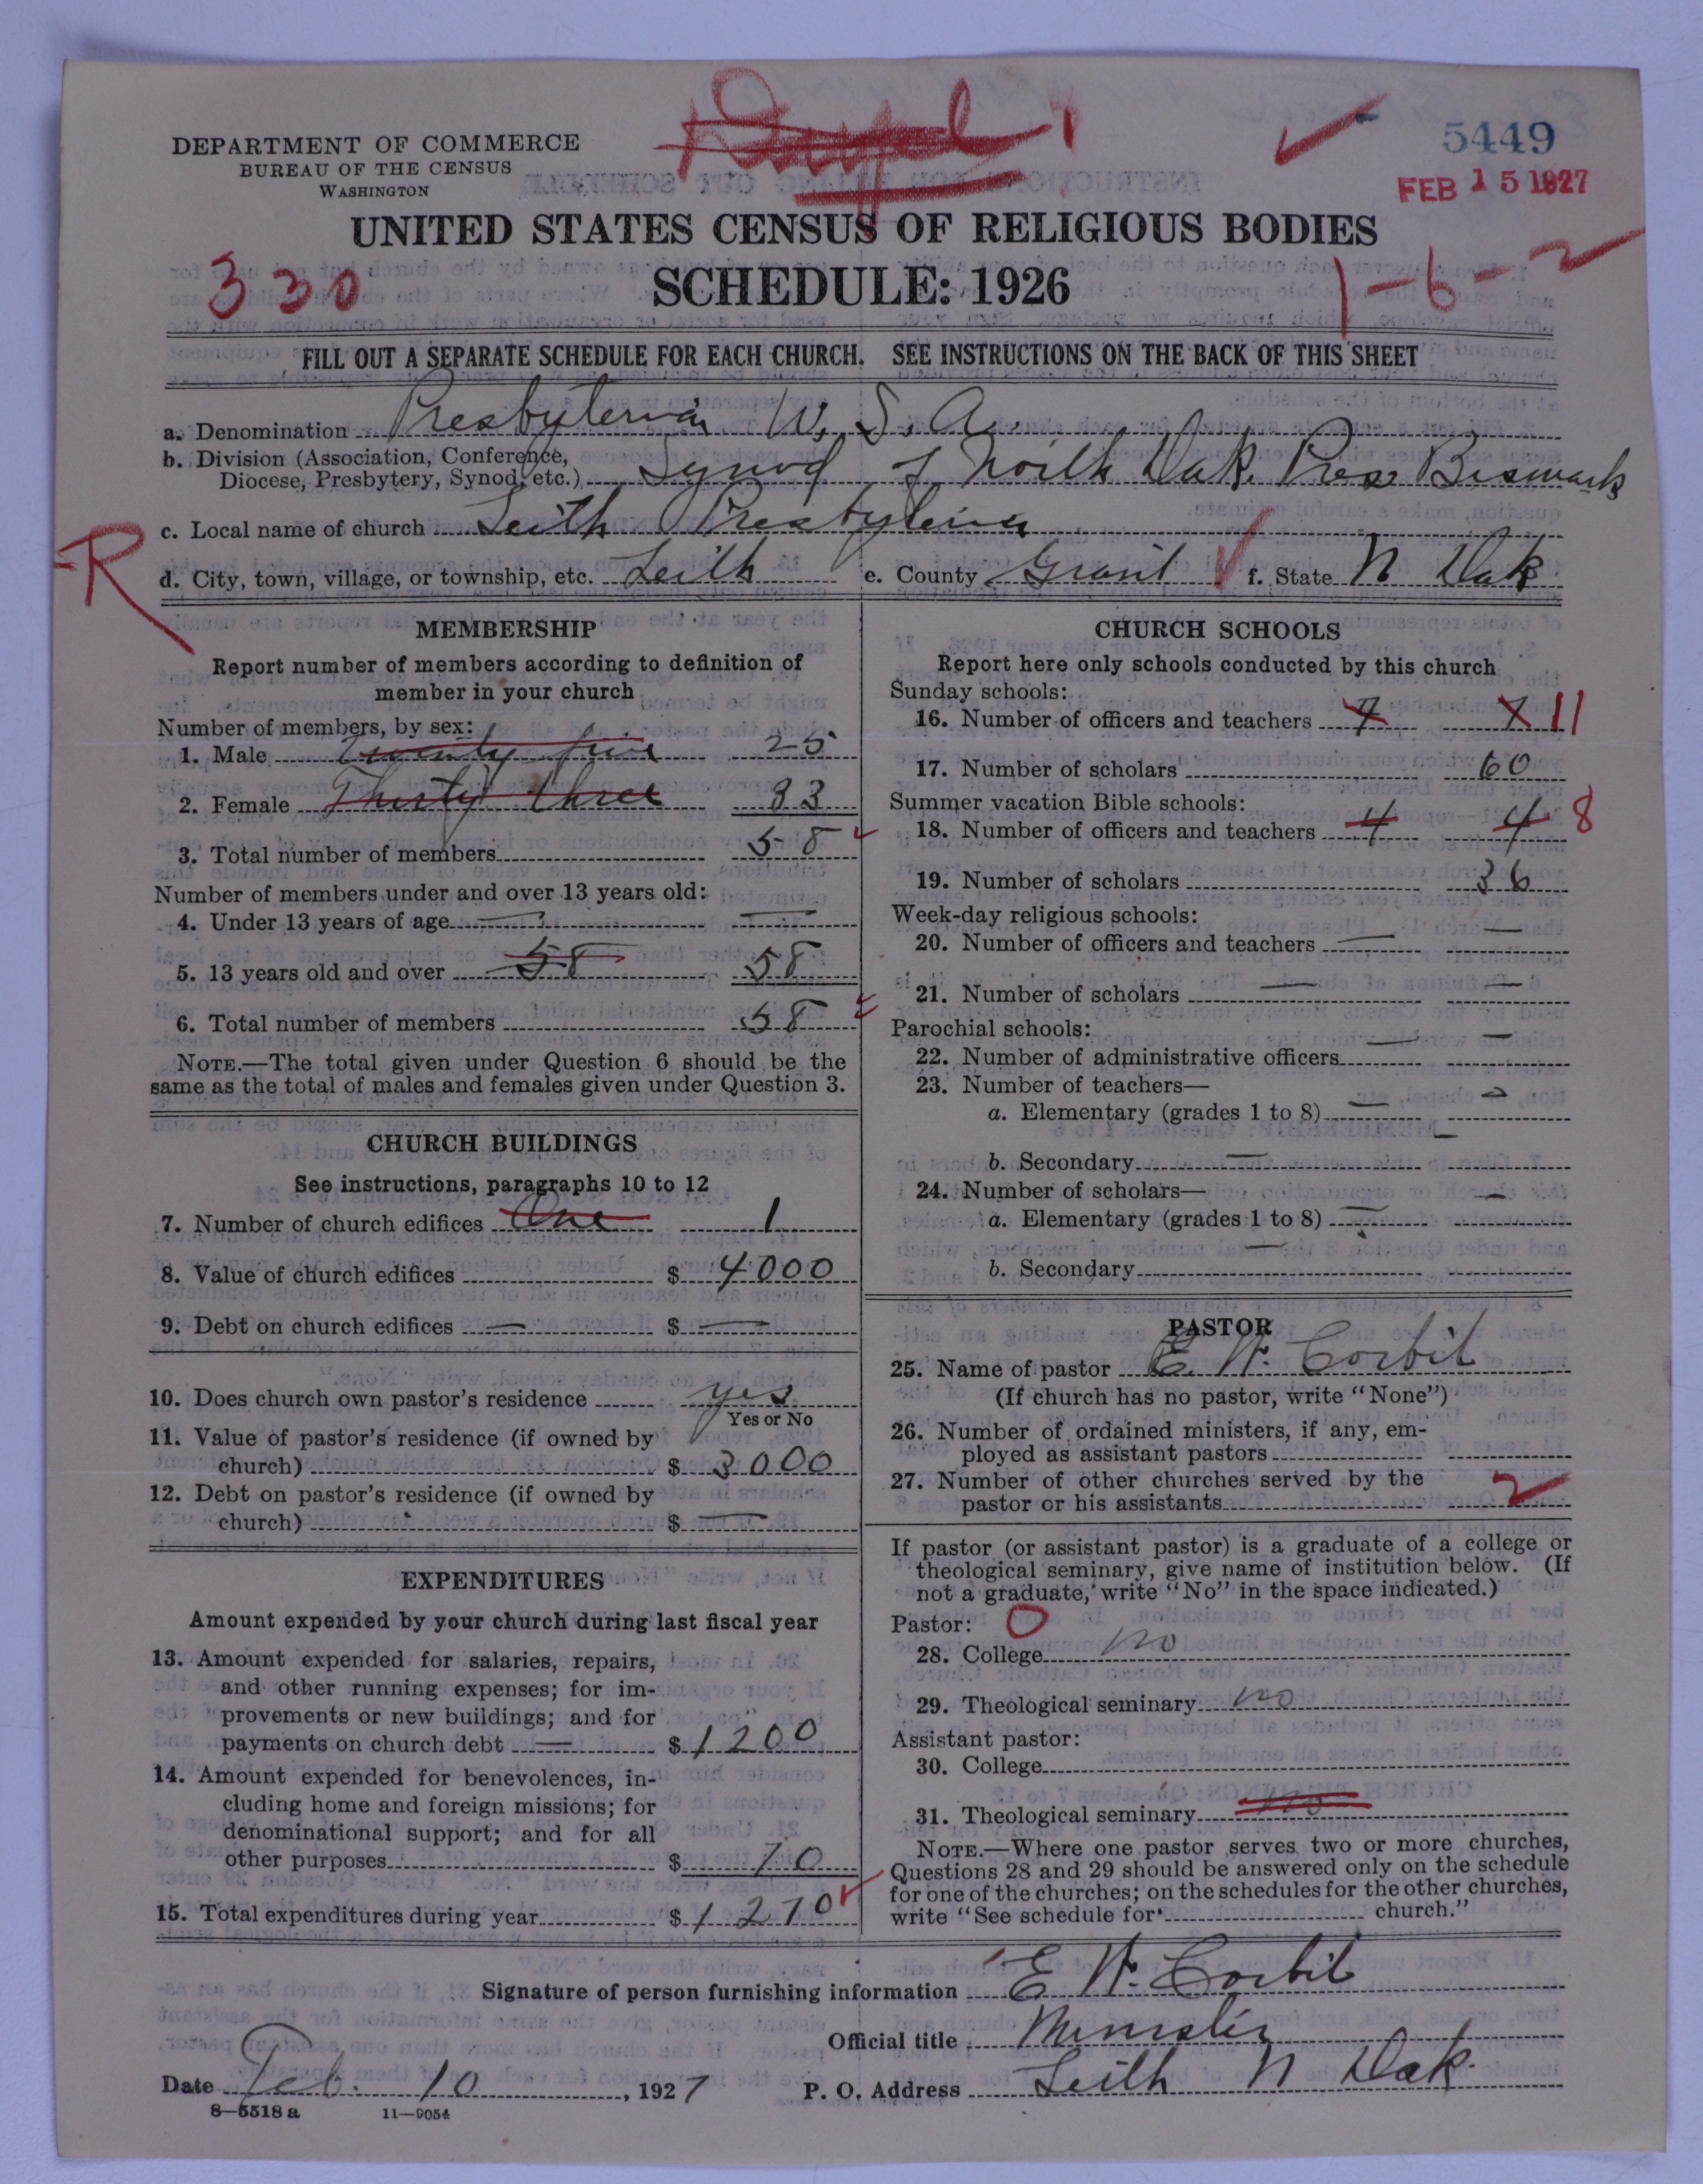 DEPARTMENT OF COMMERCE
BUREAU OF THE CENSUS
WASHINGTON
5449
FEB 15 1927
UNITED STATES CENSUS OF RELIGIOUS BODIES
SCHEDULE: 1926
330
1-6-2
FILL OUT A SEPARATE SCHEDULE FOR EACH CHURCH. SEE INSTRUCTIONS ON THE BACK OF THIS SHEET
a. Denomination Presbyterian U. S. A.
b. Division (Association, Conference,
Diocese, Presbytery, Synod, etc.) Synod of North Dak. Pres Bismark
c. Local name of church Leith Presbyterian
R
d. City, town, village, or township, etc. Leith e. County Grant f. State N Dak
MEMBERSHIP
Report number of members according to definition of
member in your church
Number of members, by sex:
1. Male Twenty five 25
2. Female Thirty three 33
3. Total number of members 58
Number of members under and over 13 years old:
4. Under 13 years of age — —
5. 13 years old and over 58 58
6. Total number of members 58
NOTE.—The total given under Question 6 should be the
same as the total of males and females given under Question 3.
CHURCH BUILDINGS
See instructions, paragraphs 10 to 12
7. Number of church edifices One 1
8. Value of church edifices $ 4000
9. Debt on church edifices — $ —
10. Does church own pastor's residence yes
Yes or No
11. Value of pastor's residence (if owned by
church) $ 3000
12. Debt on pastor's residence (if owned by
church) $ —
EXPENDITURES
Amount expended by your church during last fiscal year
13. Amount expended for salaries, repairs,
and other running expenses; for im-
provements or new buildings; and for
payments on church debt — $ 1200
14. Amount expended for benevolences, in-
cluding home and foreign missions; for
denominational support; and for all
other purposes $ 70
15. Total expenditures during year $ 1270
CHURCH SCHOOLS
Report here only schools conducted by this church
Sunday schools:
16. Number of officers and teachers 7 7 11
17. Number of scholars 60
Summer vacation Bible schools:
18. Number of officers and teachers 4 4 8
19. Number of scholars 36
Week-day religious schools:
20. Number of officers and teachers — —
21. Number of scholars — —
Parochial schools:
22. Number of administrative officers — —
23. Number of teachers—
a. Elementary (grades 1 to 8) — —
b. Secondary — —
24. Number of scholars—
a. Elementary (grades 1 to 8) — —
b. Secondary —
PASTOR
25. Name of pastor E. W. Corbit
(If church has no pastor, write "None")
26. Number of ordained ministers, if any, em-
ployed as assistant pastors
27. Number of other churches served by the
pastor or his assistants 2
If pastor (or assistant pastor) is a graduate of a college or
theological seminary, give name of institution below. (If
not a graduate, write "No" in the space indicated.)
Pastor: O
28. College no
29. Theological seminary no
Assistant pastor:
30. College
31. Theological seminary no
NOTE.—Where one pastor serves two or more churches,
Questions 28 and 29 should be answered only on the schedule
for one of the churches; on the schedules for the other churches,
write "See schedule for church."
Signature of person furnishing information E W. Corbit
Official title Minister
Date Feb. 10, 1927 P. O. Address Leith N Dak.
8—5518 a 11—9054